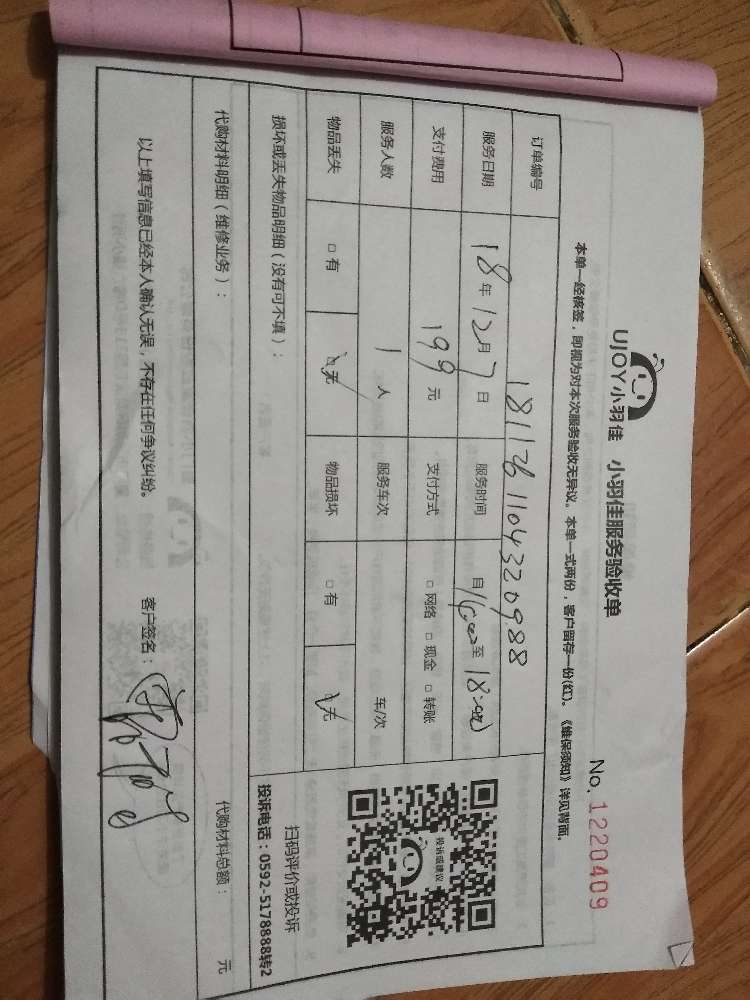 UJOY小羽佳 小羽佳服务验收单
No. 1220409
本单一经核签，即视为对本次服务验收无异议。本单一式两份，客户留存一份(红)。《维保须知》详见背面。
订单编号 181126110432098​8
服务日期 18年12月7日 服务时间 自15:00至18:00
支付费用 199元 支付方式 □网络 □现金 □转账
服务人数 1人 服务车次 车/次
物品丢失 □有 ☑无 物品损坏 □有 ☑无
投诉或建议
扫码评价或投诉
投诉电话：0592-5178888转2
损坏或丢失物品明细（没有可不填）：
代购材料明细（维修业务）： 代购材料总额： 元
以上填写信息已经本人确认无误，不存在任何争议纠纷。 客户签名：